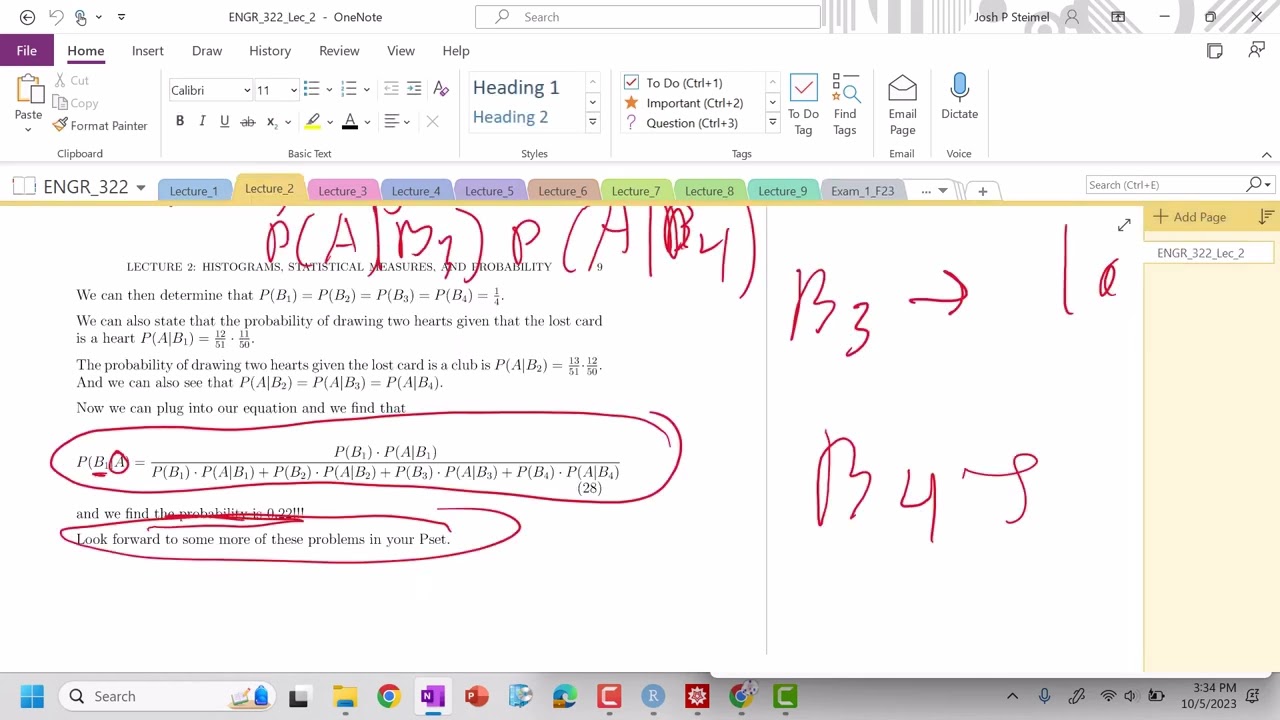 ENGR_322_Lec_2 - OneNote
Search
Josh P Steimel
File Home Insert Draw History Review View Help
Paste
Cut
Copy
Format Painter
Clipboard
Calibri 11
B I U ab x₂ A
Basic Text
Heading 1
Heading 2
Styles
To Do (Ctrl+1)
Important (Ctrl+2)
Question (Ctrl+3)
To Do Tag
Find Tags
Tags
Email Page
Email
Dictate
Voice
ENGR_322
Lecture_1 Lecture_2 Lecture_3 Lecture_4 Lecture_5 Lecture_6 Lecture_7 Lecture_8 Lecture_9 Exam_1_F23 ...
Search (Ctrl+E)
Add Page
ENGR_322_Lec_2
P(A|B₃) P(A|B₄)
LECTURE 2: HISTOGRAMS, STATISTICAL MEASURES, AND PROBABILITY 9
We can then determine that P(B₁) = P(B₂) = P(B₃) = P(B₄) = 1/4.
We can also state that the probability of drawing two hearts given that the lost card
is a heart P(A|B₁) = 12/51 · 11/50.
The probability of drawing two hearts given the lost card is a club is P(A|B₂) = 13/51 · 12/50.
And we can also see that P(A|B₂) = P(A|B₃) = P(A|B₄).
Now we can plug into our equation and we find that
P(B₁|A) = P(B₁) · P(A|B₁) / P(B₁) · P(A|B₁) + P(B₂) · P(A|B₂) + P(B₃) · P(A|B₃) + P(B₄) · P(A|B₄)
(28)
and we find the probability is 0.22!!!
Look forward to some more of these problems in your Pset.
B₃ →
B₄
Search
3:34 PM
10/5/2023